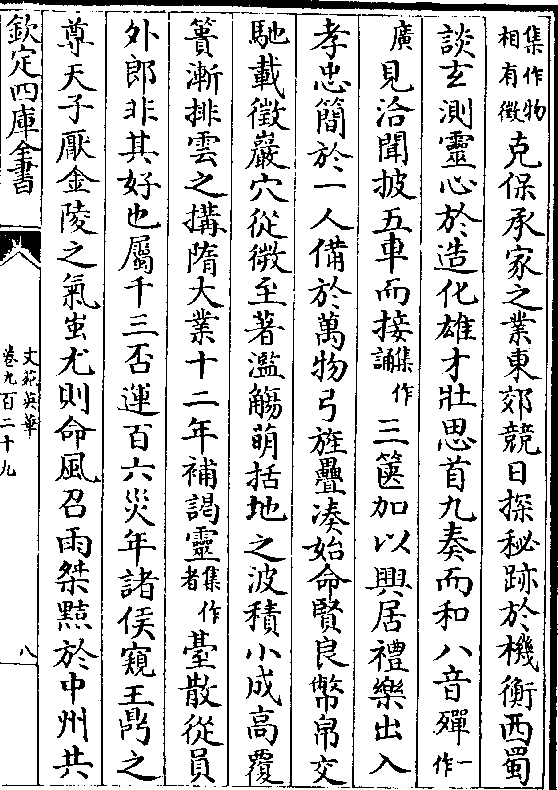 集作物相有徵克保承家之業東郊競日探秘跡於機衡西蜀
談玄測靈心於造化雄才壯思首九奏而和八音殫一作
廣見洽聞披五車而接集作誦三篋加以興居禮樂出入
孝忠簡於一人備於萬物弓旌疊湊始命賢良幣帛交
馳載徵巖穴從微至著濫觴萌括地之波積小成高覆
簣漸排雲之搆隋大業十二年補謁靈集作者臺散從員
外郎非其好也屬千三否運百六災年諸侯窺王鼎之
尊天子厭金陵之氣蚩尤則命風召雨桀黠於中州共
欽定四庫全書
文苑英華
卷九百二十九
八